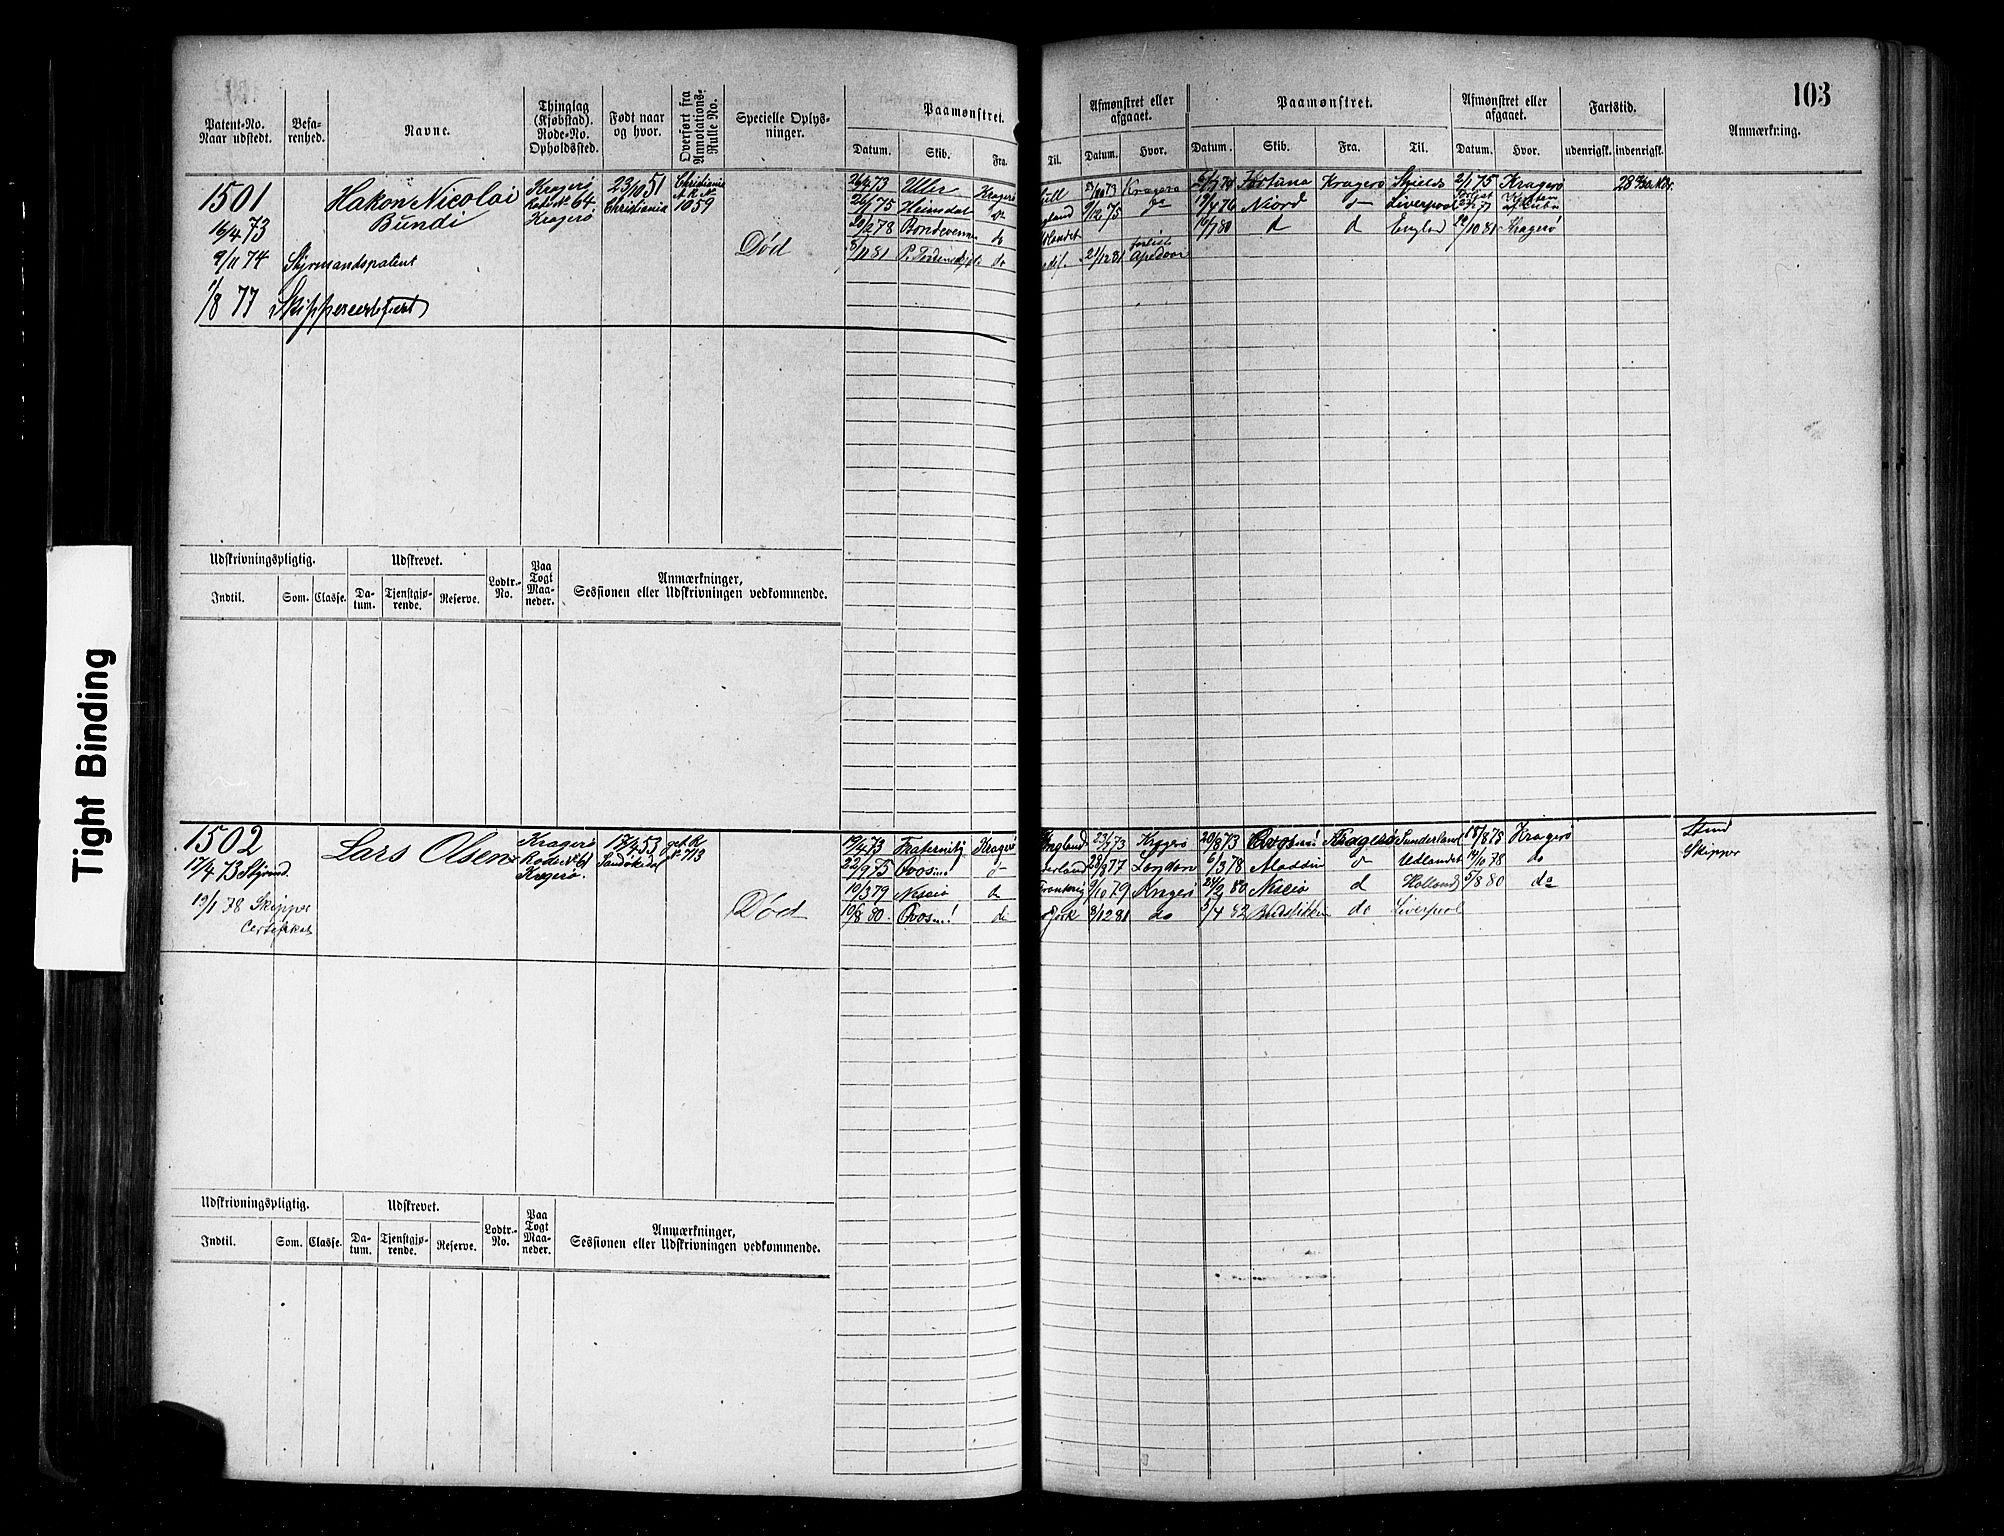 103
Patent-No.
Naar udstedt.
Befa-
renhed.
Navne.
Thinglag
(Kjøbstad).
Rode-No.
Opholdssted.
Født naar
og hvor.
Overført fra
Annotations-
Rulle No.
Specielle Oplys-
ninger.
Paamønstret.
Datum. Skib. Fra.
Til.
Afmønstret eller
afgaaet.
Datum. Hvor.
Paamønstret.
Datum. Skib. Fra. Til.
Afmønstret eller
afgaaet.
Datum. Hvor.
Fartstid.
udenrigsk. indenrigsk.
Anmærkning.
1501
16/4 73
9/11 74 Styrmandspatent
1/8 77 Skippercertificat
Hakon Nicolai
Bundi
Kragerø
Rode No 64
Kragerø
23/10 51
Christiania
Christiania
1059
Død
26/4 73 Uller Kragerø
26/1 75 Heimdal do
20/2 78 Bondevennen do
8/11 81 do
73 Kragerø
9/12 75 do
21/12 81 forlist
74 Fortuna Kragerø Shields 2/1 75 Kragerø
19/4 76 Niord do Liverpool forlist
80 d d England 29/10 81 Kragerø
Udskrivningspligtig. Udskrevet. Lodtr.-
No. Paa
Togt
Maa-
neder. Anmærkninger,
Sessionen eller Udskrivningen vedkommende.
Indtil. Som. Classe. Da-
tum. Tjenstgjø-
rende. Reserve.
1502
17/4 73 Styrmd.
19/1 78 Skipper
Certifikat
Lars Olsen
Kragerø
Rode No 61
Kragerø.
17/4 53
Sandøkedal
713
Død
19/4 73 Fraternity Kragerø
22/9 75 d
10/3 79 Nescio do
10/8 80 do
England 23/7 73 Kragerø
28/9 77 London
9/10 79 Kragerø
8/12 81 do
20/8 73 Kragerø Sunderland 18/8 78 Kragerø
6/3 78 Aladdin do Udlandet 14/10 78 do
24/2 80 Nescio d Holland 5/8 80 do
5/4 82 do Liverpool
Skipper
Udskrivningspligtig. Udskrevet. Lodtr.-
No. Paa
Togt
Maa-
neder. Anmærkninger,
Sessionen eller Udskrivningen vedkommende.
Indtil. Som. Classe. Da-
tum. Tjenstgjø-
rende. Reserve.
Tight Binding